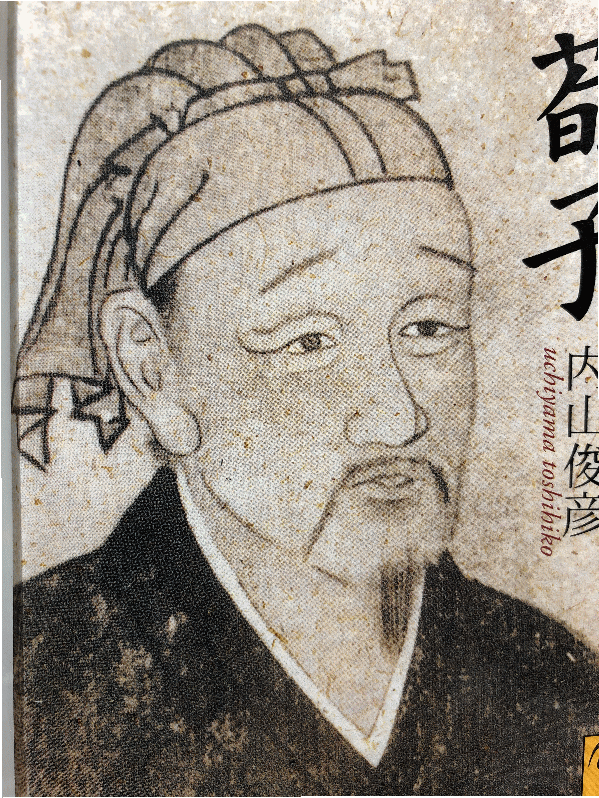 荀子
内山俊彦
uchiyama toshihiko